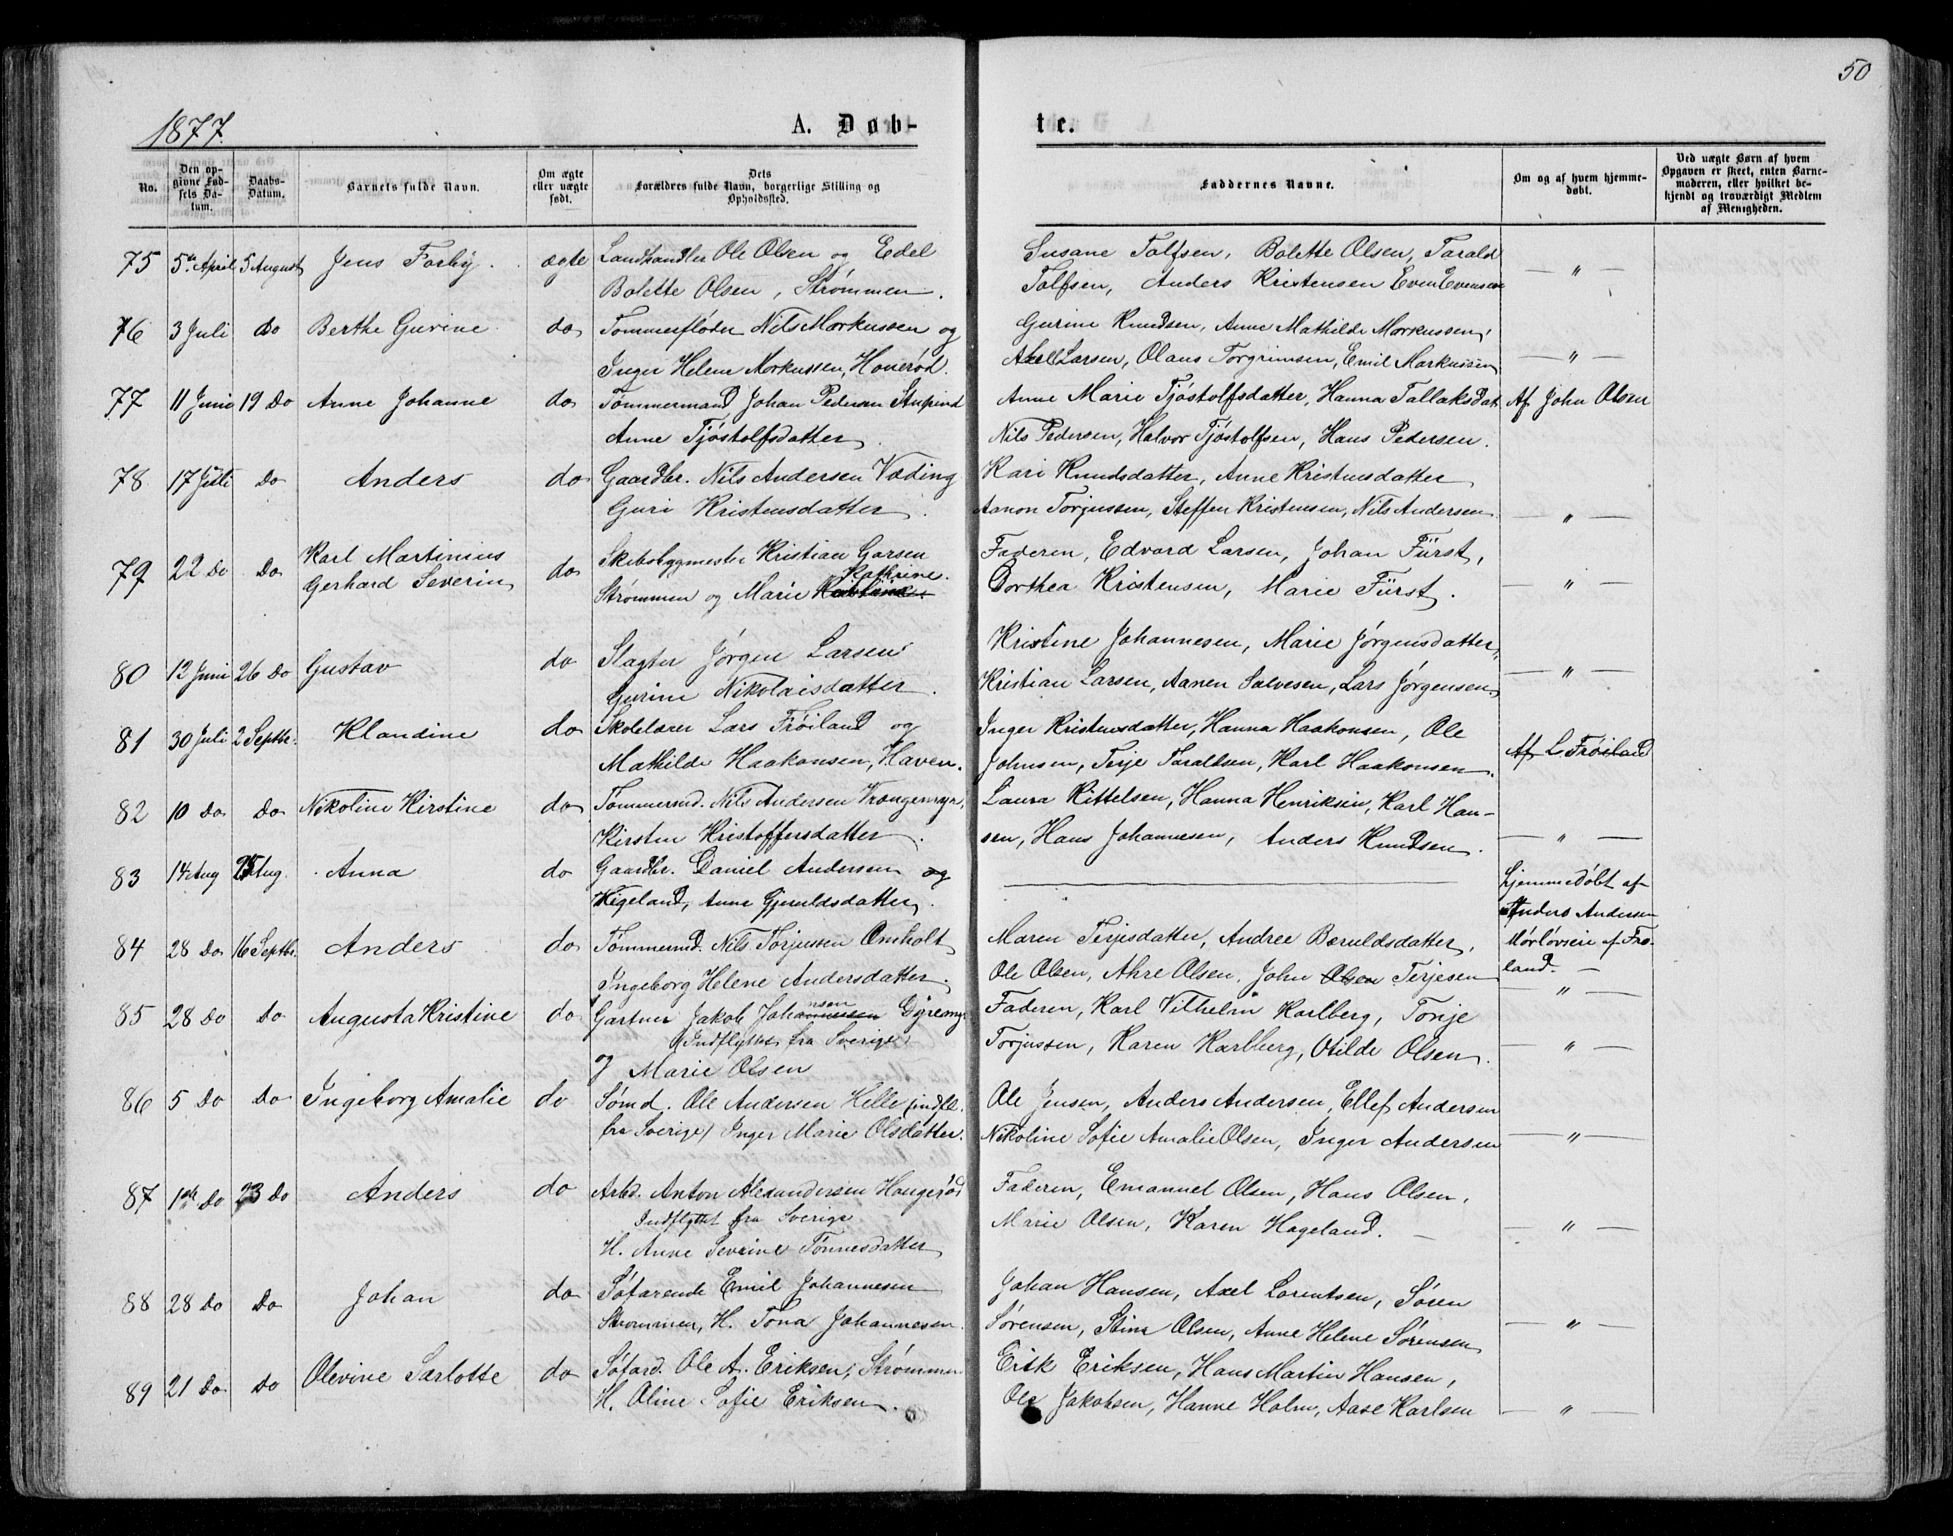 50
1877.
A. Døb-
te.
No.
Den op-
givne Fød-
sels Da-
tum.
Daabs-
Datum.
Barnets fulde Navn.
Om ægte
eller uægte
født.
Dets
Forældres fulde Navn, borgerlige Stilling og
Opholdssted.
Faddernes Navne.
Om og af hvem hjemme-
døbt.
Ved uægte Børn af hvem
Opgaven er skeet, enten Barne-
moderen, eller hvilket be-
kjendt og troværdigt Medlem
af Menigheden.
75 5te April 5 August Jens Forby ægte Landhandler Ole Olsen og Edel
Bolette Olsen, Strømmen.
Susane Tolfsen, Bolette Olsen, Tarald
Tolfsen, Anders Kristensen Even Evensen — " —
76 3 Juli Do Berthe Gurine do Tømmerfløder Nils Morkussen og
Inger Helene Morkussen,
Gurine Knudsen, Anne Mathilde Morkussen,
Axel Larsen, Olaus Torgrimsen, Emil Markussen — " —
77 11 Juni 19 Do Anne Johanne do Tømmermand Johan Pedersen
Anne Tjøstolfsdatter
Anne Marie Tjøstolfsdatter, Hanna Tallaksdat. Af John Olsen
Nils Pedersen, Halvor Tjøstolfsen, Hans Pedersen.
78 17 Juli Do Anders do Gaardbr. Nils Andersen Væding
Guri Kristensdatter.
Kari Knudsdatter, Anne Kristensdatter
Aanon Torjussen, Steffen Kristensen, Nils Andersen. — " —
79 22 Do Do Karl Martinius
Gerhard Severin do Skibsbygmester Kristian Garsen
Kathrine.
Strømmen og Marie
Faderen, Edvard Larsen, Johan Fürst,
Dorthea Kristensen, Marie Fürst. — " —
80 12 Juni 26 Do Gustav do Slagter Jørgen Larsen
Gurine Nikolaisdatter.
Kristine Johannesen, Marie Jørgensdatter,
Kristian Larsen, Aanen Salvesen, Lars Jørgensen — " —
81 30 Juli 2 Septbr. Klandine do Skolelærer Lars Frøiland og
Mathilde Haakonsen, Haven.
Inger Kristensdatter, Hanna Haakonsen, Ole
Johnsen, Terje Taraldsen, Karl Haakonsen. Af L Frøiland
82 10 Do Do Nikoline Kirstine do Tømmermd. Nils Andersen Vrangemyr,
Kirsten Kristoffersdatter.
Laura Kittelsen, Hanna Henriksen, Karl Han-
sen, Hans Johannesen, Anders Knudsen. — " —
83 14 Aug 25 Aug. Anna do Gaardbr. Daniel Andersen og
Vigeland, Anne Gjeruldsdatter.
Hjemmedøbt af
Anders Andersen
84 28 Do 16 Septbr. Anders do Tømmermd. Nils Torjussen Omholt
Ingeborg Helene Andersdatter.
Maren Terjesdatter, Andree Bæruldsdatter,
Ole Olsen, Ahre Olsen, John Olsen Terjesen
af Frø-
land. — " —
85 28 Do Do Augusta Kristine do Gartner Jakob Johannesen nsen Dyremyr
(Indflyttet fra Sverige)
og Marie Olsen
Faderen, Karl Vilhelm Karlberg, Tonje
Torjussen, Karen Karlberg, Otilde Olsen. — " —
86 5 Do Do Ingeborg Amalie do Sømd. Ole Andersen Helle (indfl.
fra Sverige) Inger Marie Olsdatter.
Ole Jensen, Anders Andersen, Ellef Andersen
Nikoline Sofie Amalie Olsen, Inger Andersen — " —
87 1ste Do 23 Do Anders do Arbd. Anton Alexandersen Haugerød
Indflyttet fra Sverige
H. Anne Severine Tønnesdatter
Faderen, Emanuel Olsen, Hans Olsen,
Marie Olsen, Karen Hageland. — " —
88 28 Do Do Johan do Søfarende Emil Johannesen
Strømmen, H. Tona Johannesen.
Johan Hansen, Axel Lorentsen, Søren
Sørensen, Stina Olsen, Anne Helene Sørensen — " —
89 21 Do Do Olevine Sarlotte do Søfard. Ole A. Eriksen, Strømmen
H. Oline Sofie Eriksen.
Erik Eriksen, Hans Martin Hansen,
Ole Jakobsen, Hanne Holm, Aase Karlsen — " —